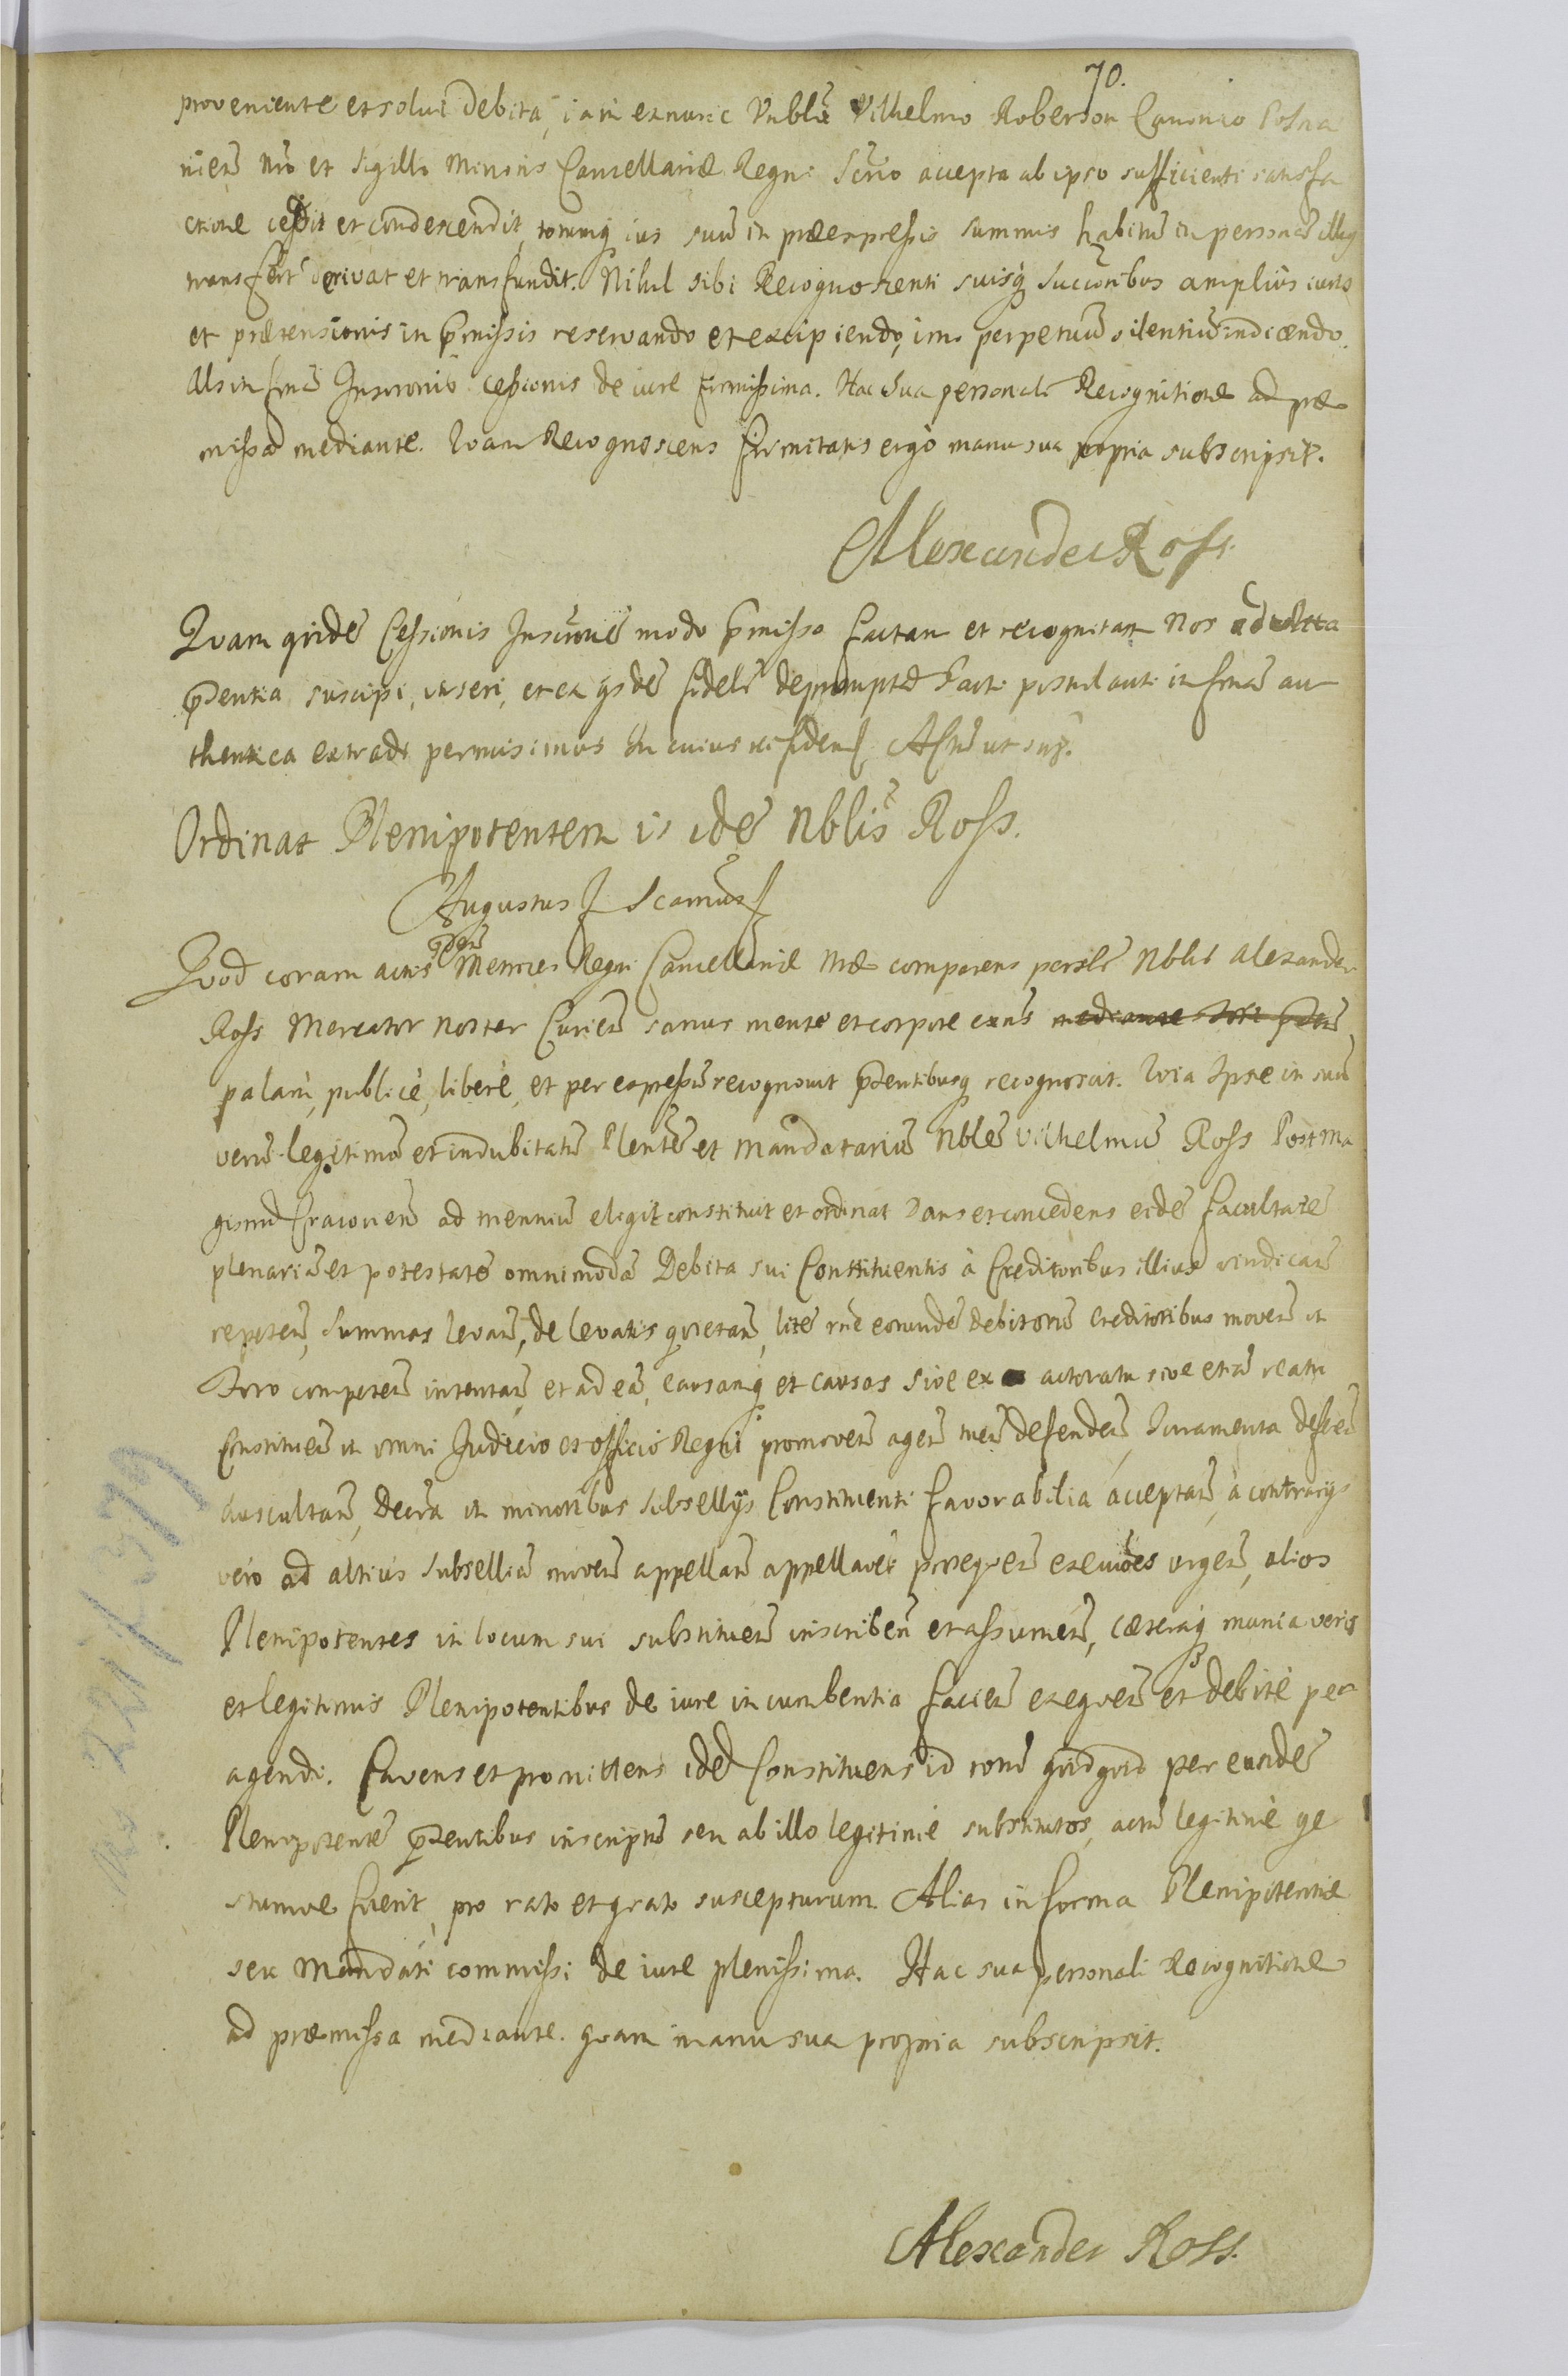 70.
proveniente et solvi debita, iam exnunc Vnbli Vilhelmo Roberson Canonico Posna
nien nro et Sigilli Minoris Cancellariæ Regni Scrio accepta ab ipso sufficienti satisfa
ctione cessit et condescendit, totumq ius suū in præexpressis summis habitū in personā illius
transfert derivat et transfundit. Nihil sibi Recognoscenti suisq succoribus amplius iuris
et prætensionis in pmissis reservando et excipiendo, imo perpetuū silentiū indicendo.
Als in fma Inscronis cessionis de iure firmissima. Hac sua personali Recognitione ad præ
missa mediante. Quam Recognoscens firmitatis ergò manu sua propria subscripsit.
Alexander Ross.
Quam qride Cessionis Inscrone modo pmisso factam et recognitam Nos ad acta
pstentia suscipi, inseri, et ex ysde fidelr depromptā Parti postulanti in fma au
thentica extradi permisimus In cuius rei fidem Actū ut sup.
Ordinat Plenipotentem is ide Nblis Ross.
Augustus Scamus
Quod coram actis pstibus Metrices Regni Cancellariæ Nræ comparens persolr Nblis Alexander
Ross Mercator noster Curien sanus mente et corpore exns mediante
palam, publicè, liberè, et per expressū recognovit pstentibusq recognoscit. Quia Ipse in suū
verū legitimū et indubitatū Plentē et Mandatariū Nblē Vilhelmū Ross Postma
gistrū Cracovien ad mentiū elegit constituit et ordinat Dans et concedens eide facultate
plenariā et potestate omnimodā Debita sui Constituentis à Creditoribus illius vindicandi
repeten, Summas levan, de levatis quietan, lite rne eorunde debitorū creditoribus moven in
Foro competen intentan, et ad eā, earsanq et causas sive ex actoratu sive etiā reatu
Constituen in omni Judicio et officio Regni promoven agen tuen defenden, Juramenta deferen
auscultan, Decra in minoribus subsellÿs Constituenti favorabilia acceptan, à contrarÿs
vero ad altius subselliū moven appellan appellaver prosequen execuóes urgen, alios
Plenipotentes in locum sui substituen inscriben et assumen, cæteraq munia veris
et legitimis Plenipotentibus de iure incumbentia facien exequen et debitè per
agendi. Cavens et promittens ide Constituens id totū quidquid per eunde
Plenipotente pstentibus inscriptū seu ab illo legitimè substitutos, actū legitimè ge
stumve fuerit, pro rato et grato suscepturum Alias in forma Plenipotentiæ
seu Mandati commissi de iure plenissima. Hac sua personali Recognitione
ad præmissa mediante. quam manu sua propria subscripsit.
Alexander Ross.